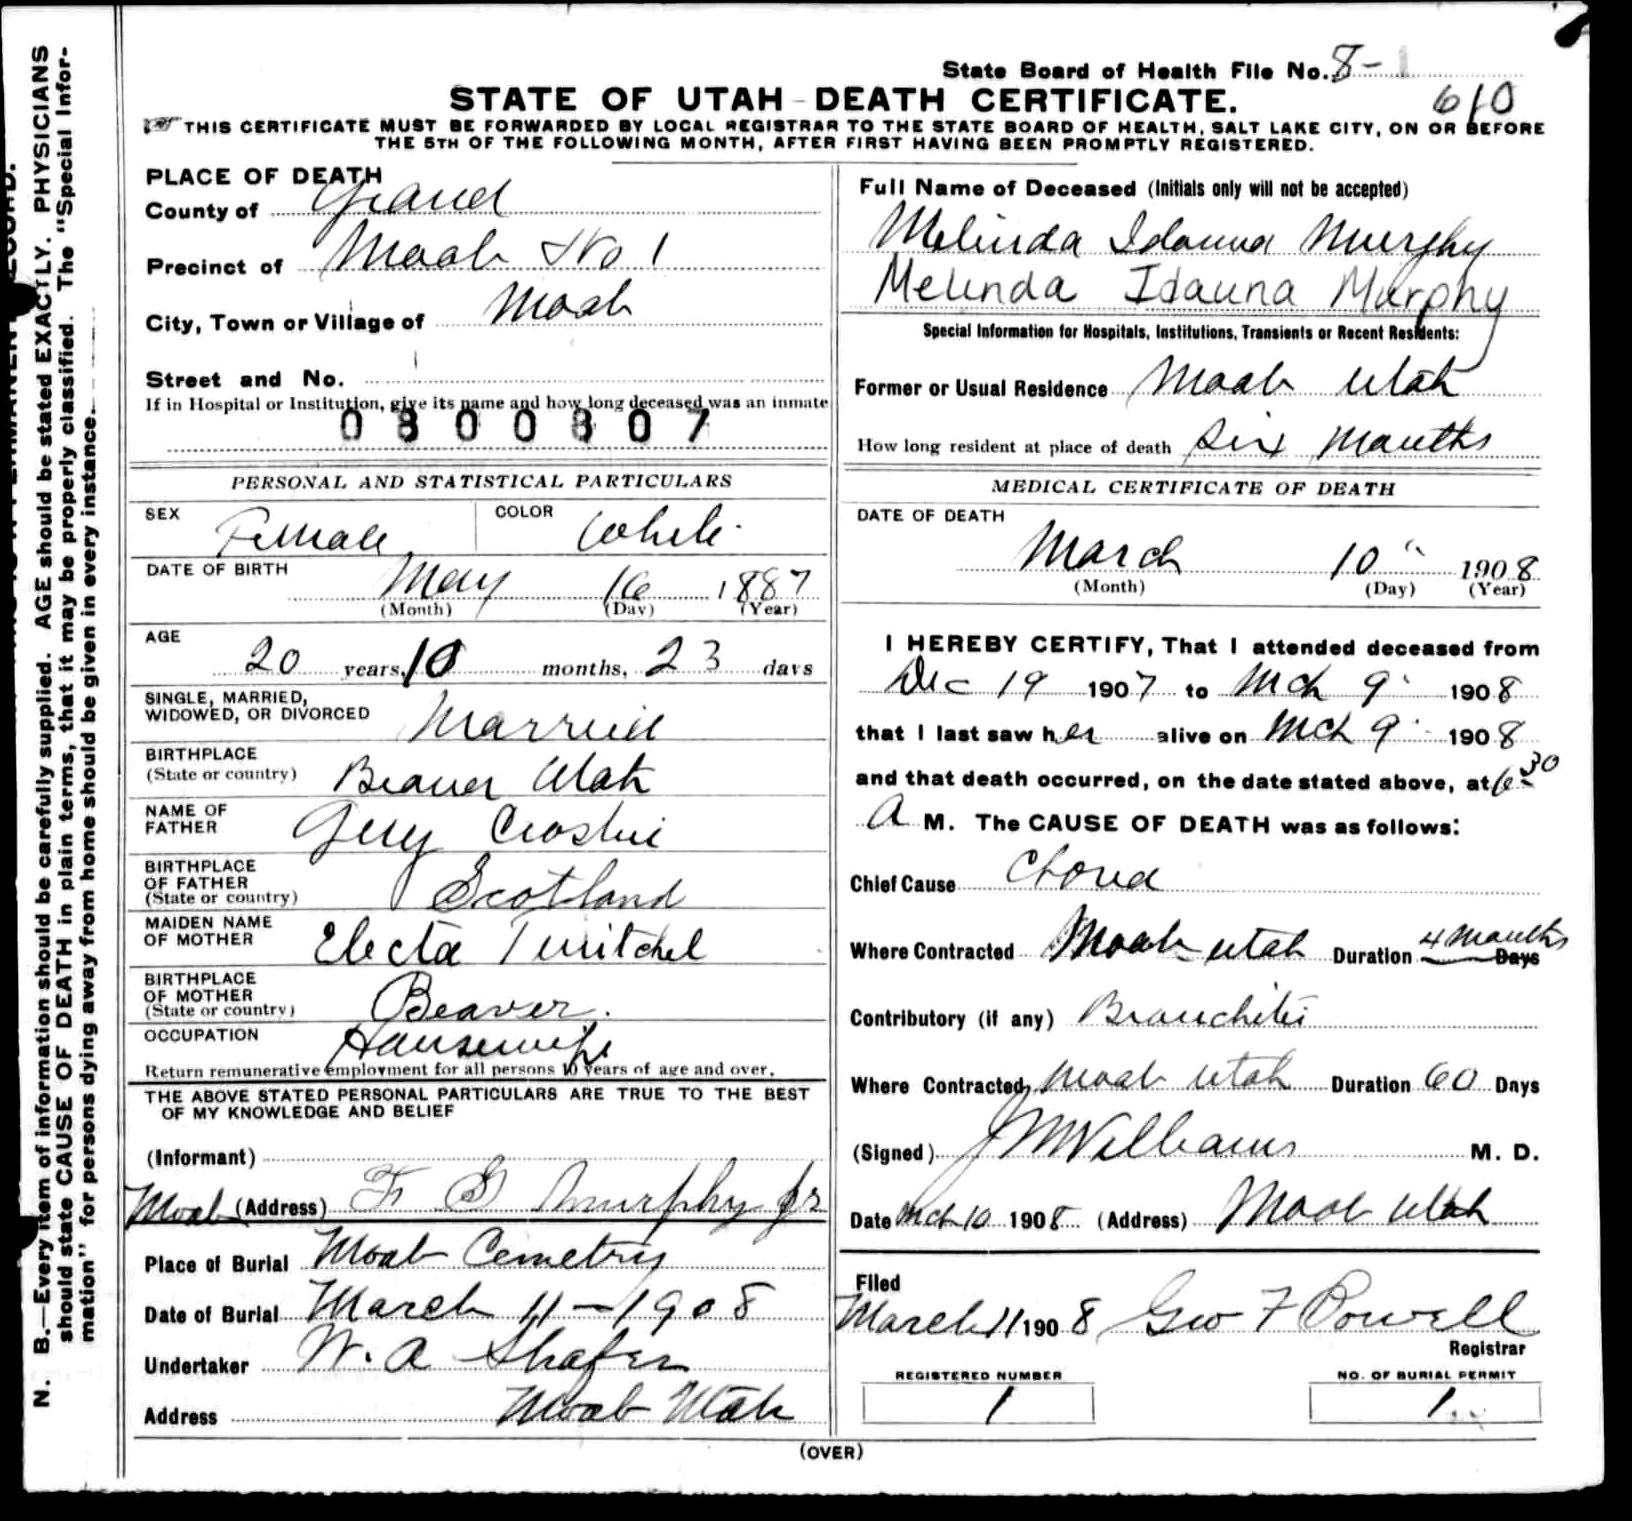 State Board of Health File No. 8-
610
STATE OF UTAH - DEATH CERTIFICATE.
THIS CERTIFICATE MUST BE FORWARDED BY LOCAL REGISTRAR TO THE STATE BOARD OF HEALTH, SALT LAKE CITY, ON OR BEFORE
THE 5TH OF THE FOLLOWING MONTH, AFTER FIRST HAVING BEEN PROMPTLY REGISTERED.
PLACE OF DEATH
County of Grand
Precinct of Moab No 1
City, Town or Village of Moab
Street and No.
If in Hospital or Institution, give its name and how long deceased was an inmate
0300307
PERSONAL AND STATISTICAL PARTICULARS
SEX Female COLOR White
DATE OF BIRTH May 16 1887
(Month) (Day) (Year)
AGE
20 years, 10 months, 23 days
SINGLE, MARRIED,
WIDOWED, OR DIVORCED Married
BIRTHPLACE
(State or country) Beaver Utah
NAME OF
FATHER Crosbie
BIRTHPLACE
OF FATHER
(State or country) Scotland
MAIDEN NAME
OF MOTHER Electa Twitchel
BIRTHPLACE
OF MOTHER
(State or country) Beaver.
OCCUPATION Housewife
Return remunerative employment for all persons 10 years of age and over.
THE ABOVE STATED PERSONAL PARTICULARS ARE TRUE TO THE BEST
OF MY KNOWLEDGE AND BELIEF
(Informant)
Moab (Address) F G Murphy Jr
Place of Burial Moab Cemetry
Date of Burial March 11 - 1908
Undertaker W. A Shafer
Address Moab Utah
Full Name of Deceased (Initials only will not be accepted)
Melinda Idauna Murphy
Melinda Idauna Murphy
Special Information for Hospitals, Institutions, Transients or Recent Residents:
Former or Usual Residence Moab Utah
How long resident at place of death Six Months
MEDICAL CERTIFICATE OF DEATH
DATE OF DEATH
March 10" 1908
(Month) (Day) (Year)
I HEREBY CERTIFY, That I attended deceased from
Dec 19 1907 to Mch 9 1908
that I last saw her alive on Mch 9 1908
and that death occurred, on the date stated above, at 6 30
A M. The CAUSE OF DEATH was as follows:
Chief Cause Chorea
Where Contracted Moab Utah Duration 4 Months Days
Contributory (if any) Bronchitis
Where Contracted Moab Utah Duration 60 Days
(Signed) J M Williams M. D.
Date Mch 10 1908 (Address) Moab Utah
Filed
March 11 1908 Geo F Powell
Registrar
REGISTERED NUMBER
1
NO. OF BURIAL PERMIT
1
(OVER)
N. B.—Every item of information should be carefully supplied. AGE should be stated EXACTLY. PHYSICIANS
should state CAUSE OF DEATH in plain terms, that it may be properly classified. The "Special Infor-
mation" for persons dying away from home should be given in every instance.